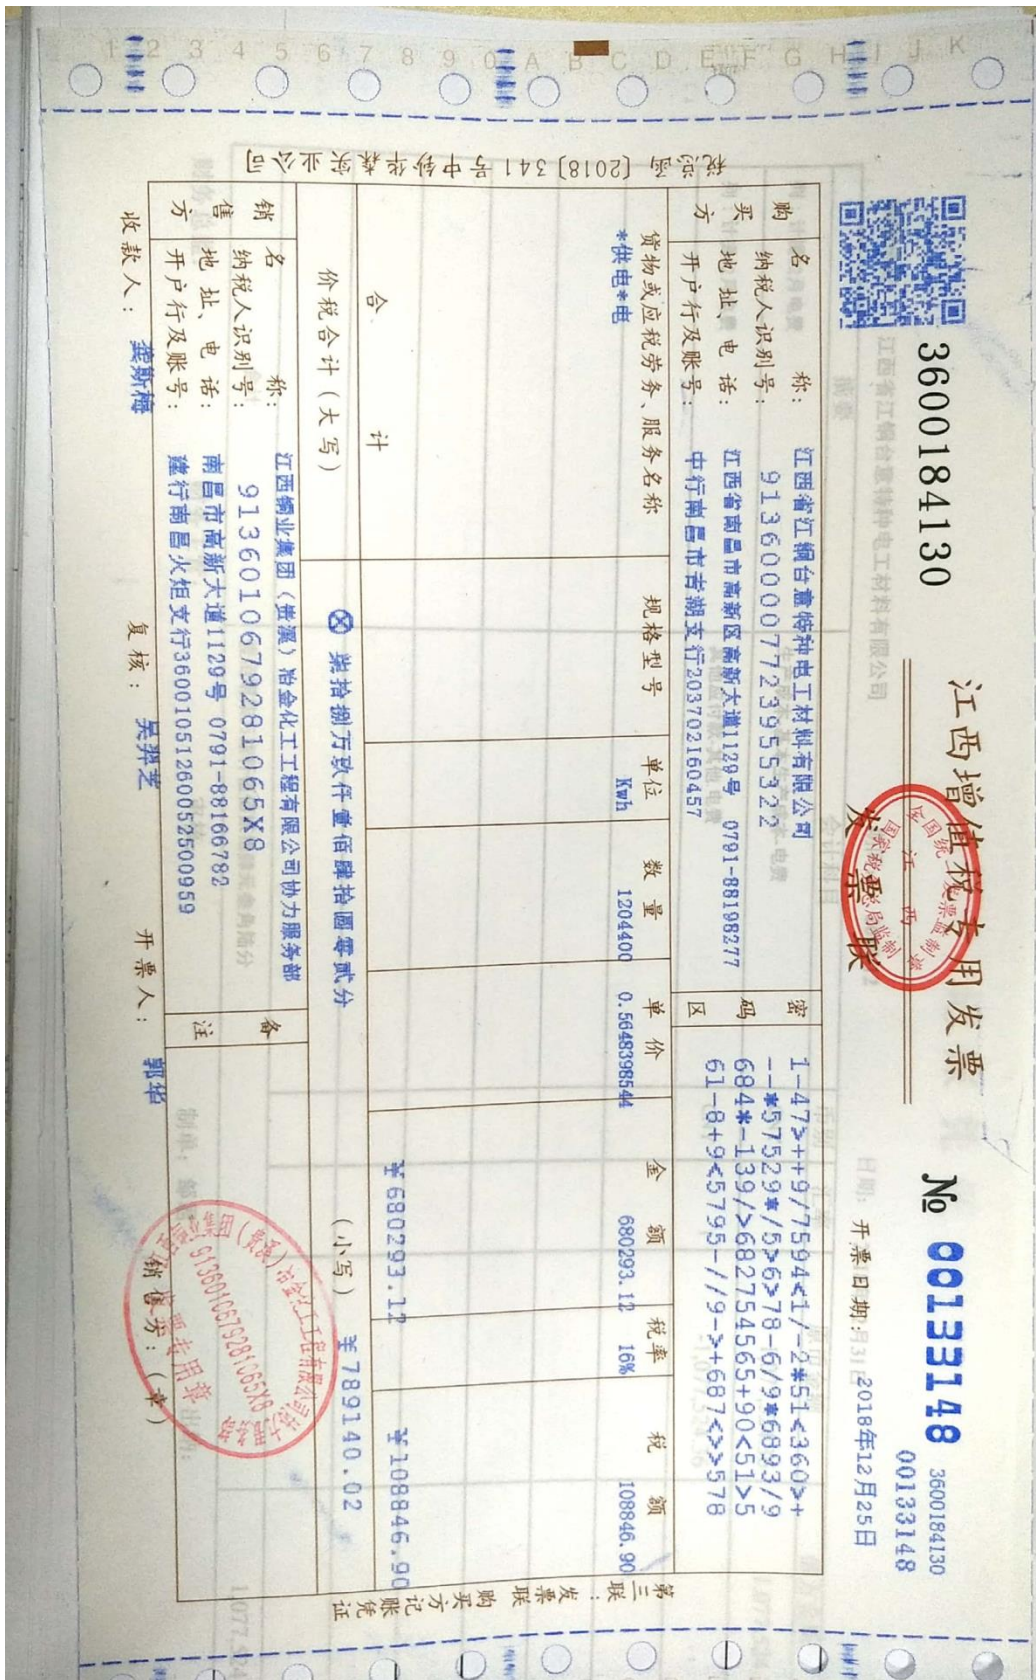 3600184130
江西增值税专用发票
发票联
№ 00133148
3600184130
00133148
开票日期: 2018年12月25日
购买方
名称: 江西省江铜台意特种电工材料有限公司
纳税人识别号: 913600007723955322
地址、电话: 江西省南昌市高新区高新大道1129号 0791-88198277
开户行及账号: 中行南昌市青湖支行203702160457
密码区
1-47>++9/7594<1/-2*51<360>+
--*57529*/5>6>78-6/9*6893/9
684*-139/>682754565+90<51>5
61-8+9<5795-//9->+687<>>578
货物或应税劳务、服务名称 规格型号 单位 数量 单价 金额 税率 税额
*供电*电 Kwh 1204400 0.5648398544 680293.12 16% 108846.90
合计 ¥680293.12 ¥108846.90
价税合计(大写) ⊗ 柒拾捌万玖仟壹佰肆拾圆零贰分 (小写) ¥789140.02
销售方
名称: 江西铜业集团(贵溪)冶金化工工程有限公司协力服务部
纳税人识别号: 9136010679281065X8
地址、电话: 南昌市高新大道1129号 0791-88166782
开户行及账号: 建行南昌火炬支行36001051260052500959
备注
收款人: 龚斯梅 复核: 吴羿芝 开票人: 郭华 销售方:(章)
第三联:发票联 购买方记账凭证
9136010679281065X8
发票专用章
江西省江铜台意特种电工材料有限公司